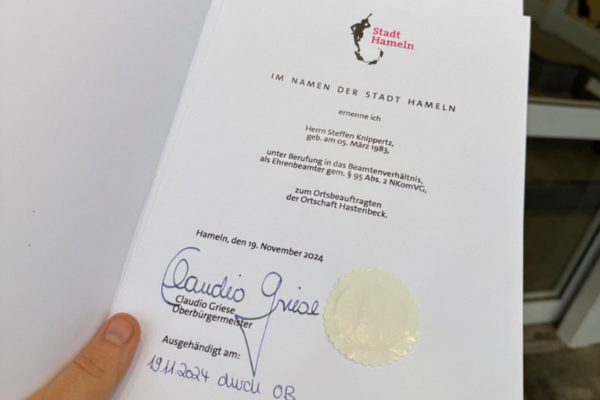 Stadt
Hameln
IM NAMEN DER STADT HAMELN
ernenne ich
Herrn Steffen Knippertz,
geb. am 05. März 1983,
unter Berufung in das Beamtenverhältnis,
als Ehrenbeamter gem. § 95 Abs. 2 NKomVG,
zum Ortsbeauftragten
der Ortschaft Hastenbeck.
Hameln, den 19. November 2024
Claudio Griese
Claudio Griese
Oberbürgermeister
Ausgehändigt am:
19.11.2024 durch OB